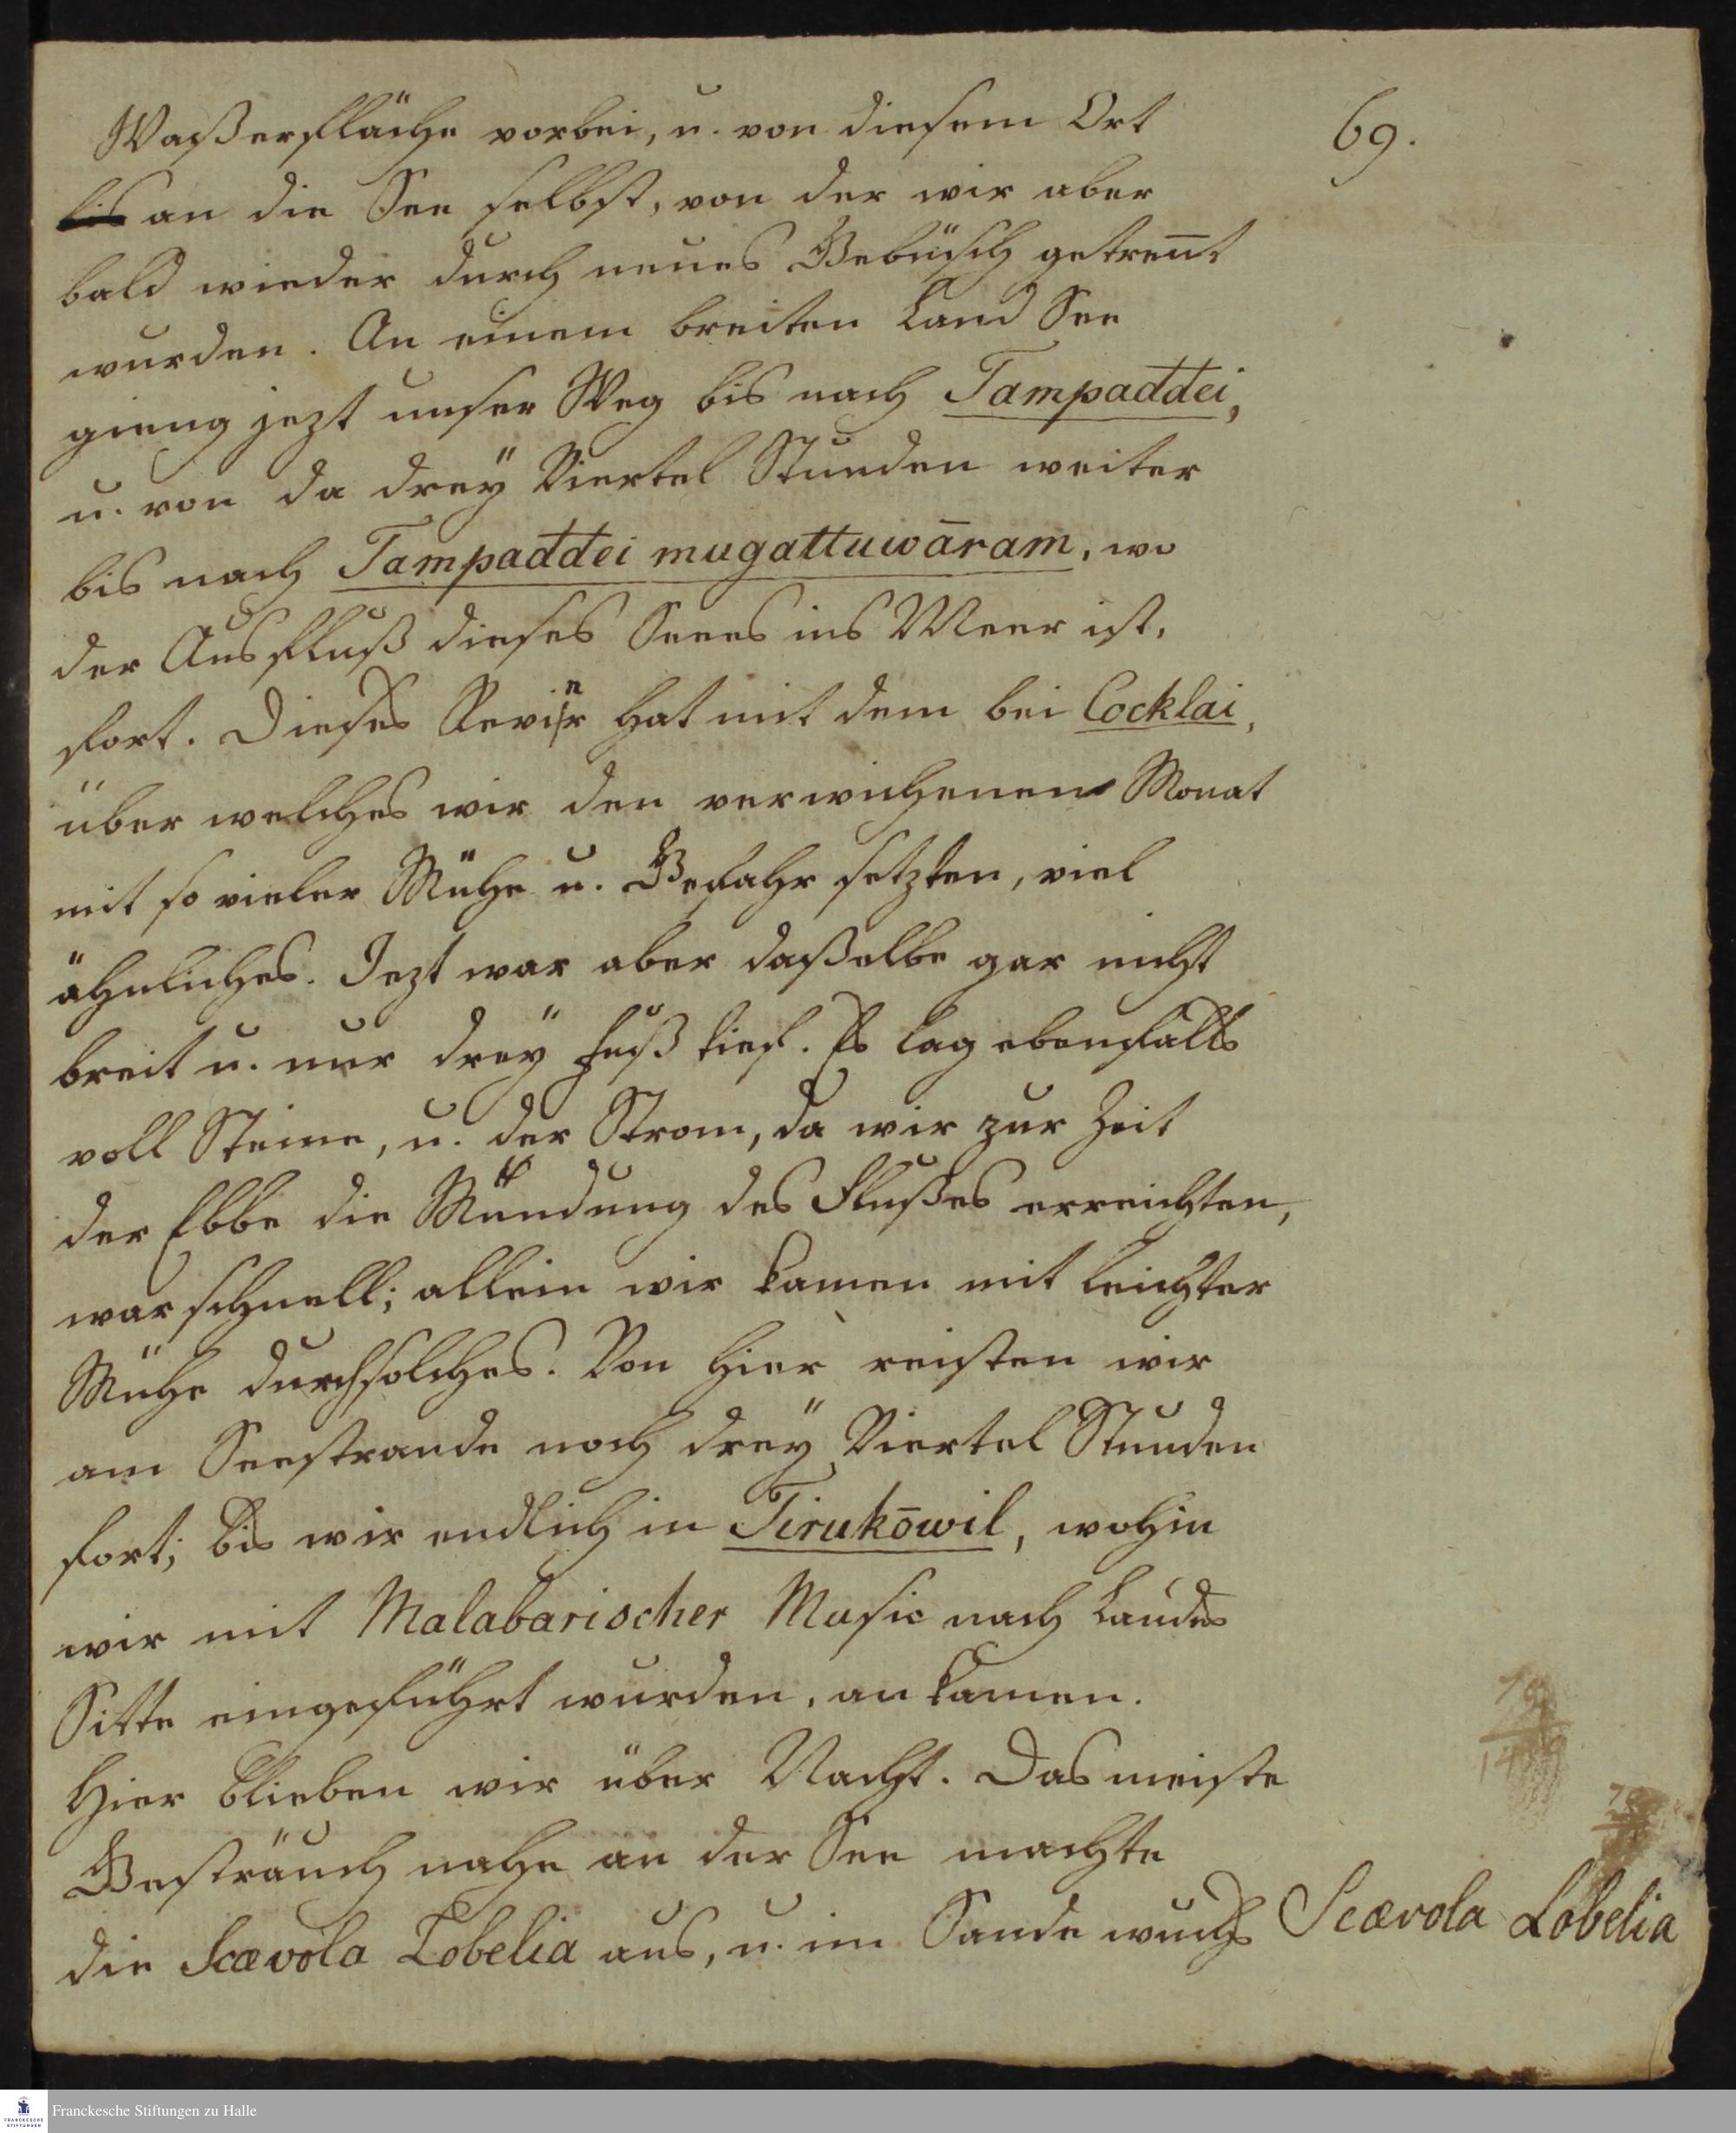 69.
Waßerfläche vorbei, u. von diesem Ort
bis an die See selbst, von der wir aber
bald wieder durch neues Gebüsch getren̄t
wurden. An einem breiten Land See
gieng jezt unser Weg bis nach Tampaddei,
u. von da dreÿ Viertel Stunden weiter
bis nach Tampaddei mugattuwāram, wo
der Ausfluß dieses Sees ins Meer ist,
fort. Dieses Revier hat mit dem bei Cocklai,
über welches wir den verwichenen Monat
mit so vieler Mühe u. Gefahr setzten, viel
ähnliches. Jezt war aber daßelbe gar nicht
breit u. nur dreÿ Fuß tief. Es lag ebenfalls
voll Steine, u. der Strom, da wir zur Zeit
der Ebbe die Mündung des Flußes erreichten,
war schnell; allein wir kamen mit leichter
Mühe durch solches. Von hier reisten wir
am Seestrande noch dreÿ Viertel Stunden
fort; bis wir endlich in Tirukōwil, wohin
wir mit Malabarischer Music nach Landes
Sitte eingeführt wurden, an kamen.
Hier blieben wir über Nacht. Das meiste
Gesträuch nahe an der See machte
die Scævola Lobelia aus, u. im Sande wuchs
Scævola Lobelia
Franckesche Stiftungen zu Halle